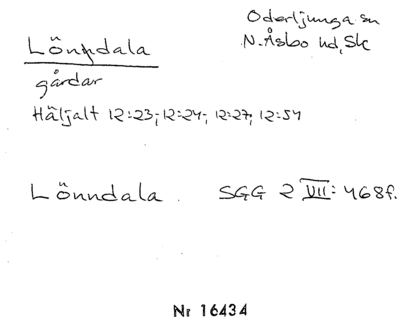 Oderljunga sn
N. Åsbo hd, Sk
Lönndala
gårdar
Häljalt 12:23; 12:24; 12:27, 12:54
Lönndala. SGG 2 VII: 468f.
Nr 16434